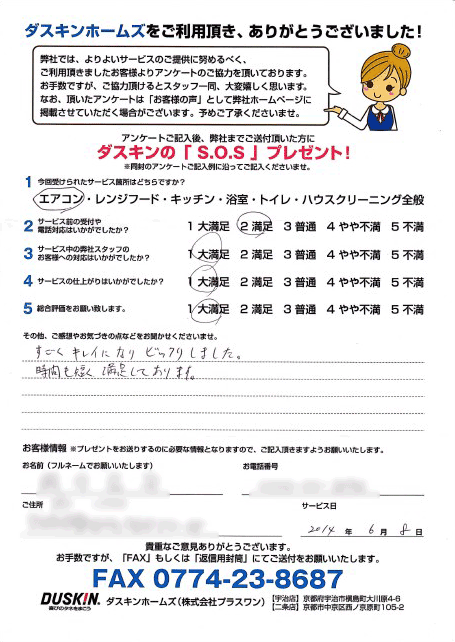 ダスキンホームズをご利用頂き、ありがとうございました!
弊社では、よりよいサービスのご提供に努めるべく、
ご利用頂きましたお客様よりアンケートのご協力を頂いております。
お手数ですが、ご協力頂けるとスタッフ一同、大変嬉しく思います。
なお、頂いたアンケートは「お客様の声」として弊社ホームページに
掲載させていただく場合がございます。予めご了承くださいませ。
アンケートご記入後、弊社までご送付頂いた方に
ダスキンの「S.O.S」プレゼント!
※同封のアンケートご記入例に沿ってご記入くださいませ。
1 今回受けられたサービス箇所はどちらですか?
エアコン・レンジフード・キッチン・浴室・トイレ・ハウスクリーニング全般
2 サービス前の受付や
電話対応はいかがでしたか?
1 大満足 2 満足 3 普通 4 やや不満 5 不満
3 サービス中の弊社スタッフの
お客様への対応はいかがでしたか?
1 大満足 2 満足 3 普通 4 やや不満 5 不満
4 サービスの仕上がりはいかがでしたか?
1 大満足 2 満足 3 普通 4 やや不満 5 不満
5 総合評価をお願い致します。
1 大満足 2 満足 3 普通 4 やや不満 5 不満
その他、ご感想やお気づきの点などをお聞かせくださいませ。
すごくキレイになりビックリしました。
時間も短く満足しております。
お客様情報 ※プレゼントをお送りするのに必要な情報となりますので、ご記入頂きますようお願いいたします。
お名前(フルネームでお願いいたします)
お電話番号
ご住所
サービス日
2014 年 6 月 8 日
貴重なご意見ありがとうございます。
お手数ですが、「FAX」もしくは「返信用封筒」にてご送付をお願いいたします。
FAX 0774-23-8687
DUSKIN
喜びのタネをまこう
ダスキンホームズ(株式会社プラスワン)
【宇治店】京都府宇治市槇島町大川原4-6
【二条店】京都市中京区西ノ京原町105-2